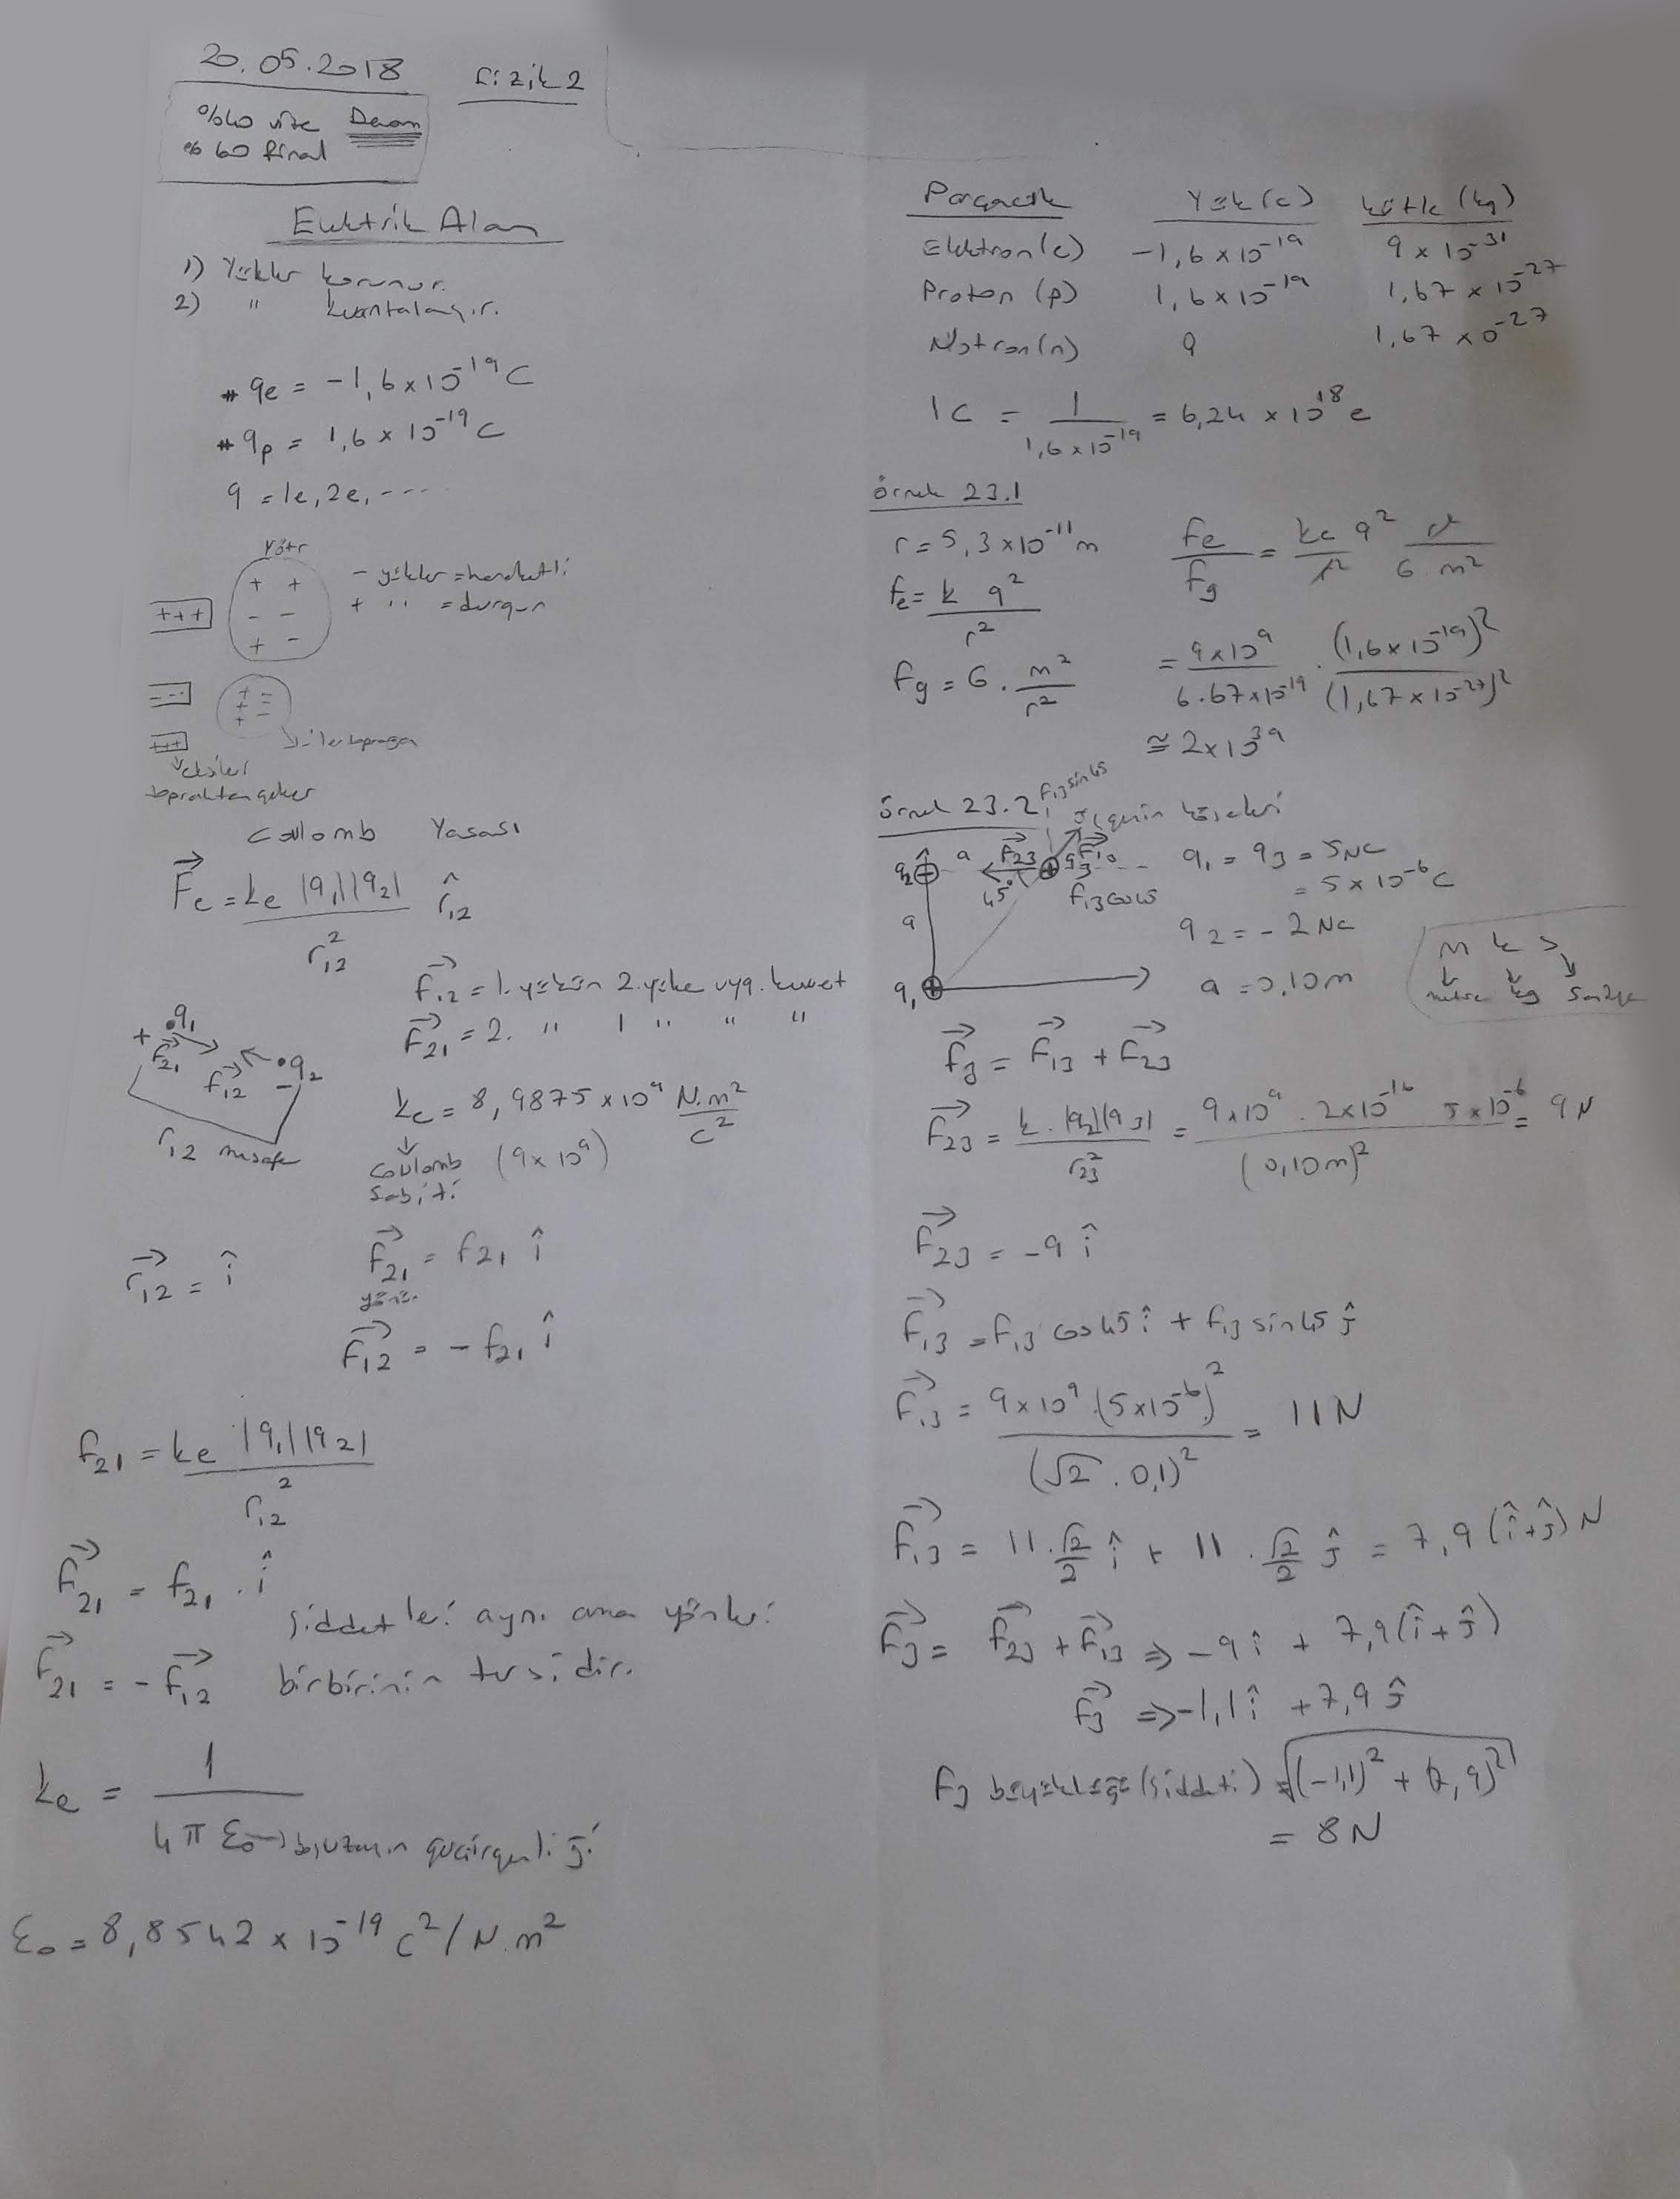 20.05.2018 Fizik 2
%40 vize Devam
%60 final
Elektrik Alan
1) Yükler korunur.
2) " kuantalaşır.
* qe = -1,6x10^-19 C
* qp = 1,6x10^-19 C
q = 1e, 2e, ----
Nötr
+ +
- -
+ -
+++
- yükler = hareketli
+ " = durgun
---
+++
eksileri
topraktan çeker
Coulomb Yasası
Fe = ke |q1||q2| / r12^2 r̂12
F12 = 1. yükün 2. yüke uyg. kuvvet
F21 = 2. " 1 " " "
+ q1 F21 F12 q2 -
r12 mesafe
ke = 8,9875x10^9 N.m^2/C^2
Coulomb (9x10^9)
Sabiti
r12 = î
F21 = F21 î
yönü
F12 = -F21 î
F21 = ke |q1||q2| / r12^2
F21 = F21 . î
Şiddetleri aynı ama yönleri
F21 = -F12 birbirinin tersidir.
ke = 1 / 4π ε0 → boşluğun geçirgenliği
ε0 = 8,8542 x 10^-19 C^2/N.m^2
Parçacık Yük (c) kütle (kg)
Elektron (e) -1,6x10^-19 9x10^-31
Proton (p) 1,6x10^-19 1,67x10^-27
Nötron (n) 1,67x0^-27
1C = 1 / 1,6x10^-19 = 6,24x10^18 e
Örnek 23.1
r = 5,3x10^-11 m
Fe / Fg = ke q^2 / r^2 r^2 / G m^2
Fe = k q^2 / r^2
Fg = G . m^2 / r^2
= 9x10^9 / 6.67x10^-19 . (1,6x10^-19)^2 / (1,67x10^-27)^2
≅ 2x10^39
Örnek 23.2 üçgenin köşeleri
F13 sin45
q2 a F23 q3 F13
45° F13 cos45
a
q1
q1 = q3 = 5NC
= 5x10^-6 C
q2 = -2NC
a = 0,10m
M k s
metre kg saniye
F3 = F13 + F23
F23 = k.|q2||q3| / r23^2 = 9x10^9 . 2x10^-16 5x10^-6 / (0,10m)^2 = 9N
F23 = -9 î
F13 = F13 cos45 î + F13 sin45 ĵ
F13 = 9x10^9.(5x10^-6)^2 / (√2 . 0,1)^2 = 11N
F13 = 11.√2/2 î + 11.√2/2 ĵ = 7,9(î+ĵ)N
F3 = F23 + F13 ⇒ -9î + 7,9(î+ĵ)
F3 ⇒ -1,1î + 7,9ĵ
F3 büyüklüğü (şiddeti) = √(-1,1)^2 + (7,9)^2
= 8N